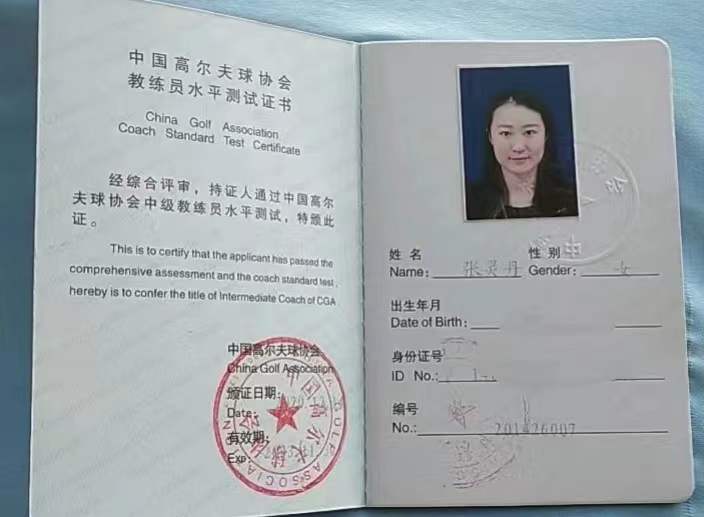 中国高尔夫球协会
教练员水平测试证书
China Golf Association
Coach Standard Test Certificate
经综合评审，持证人通过中国高尔
夫球协会中级教练员水平测试，特颁此
证。
This is to certify that the applicant has passed the
comprehensive assessment and the coach standard test,
hereby is to confer the title of Intermediate Coach of CGA
中国高尔夫球协会
China Golf Association
颁证日期：
Date:
有效期：
Exp:
中国高尔夫球协会
GOLF ASSOCIATION
姓 名 性 别
Name: 张灵丹 Gender: 女
出生年月
Date of Birth:
身份证号
ID No.:
编号
No.: 201426007